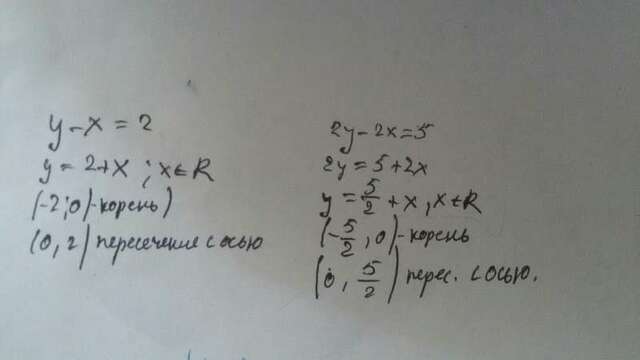 y-x=2
y=2+x; x∈R
(-2;0)-корень)
(0,2) пересечение с осью
2y-2x=5
2y=5+2x
y=5/2+x, x∈R
(-5/2,0)-корень
(0,5/2) перес. с осью.